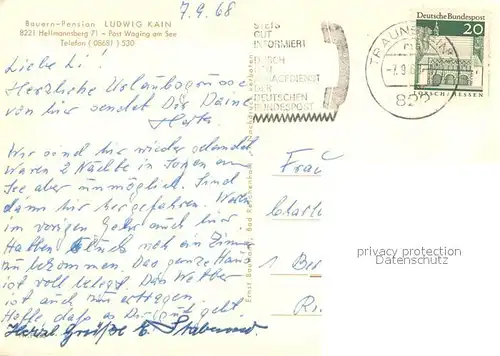 7.9.68
Bauern-Pension LUDWIG KAIN
8221 Hellmannsberg 71 – Post Waging am See
Telefon (08681) 530
STETS
GUT
INFORMIERT
DURCH
DEN
DER
DEUTSCHEN
BUNDESPOST
TRAUNSTEIN
-7.9.6
822
Deutsche Bundespost
20
LORSCH/HESSEN
Liebe Li!
Herzliche Urlaubsgrüsse
von hier sendet Dir Deine
Wir sind hier wieder gelandet
Waren 2 Nächte in
See aber unmöglich. Sind
dann hier hergefahren. Waren
im vorigen Jahr auch hier
Hatten Glück noch ein Zimmer
zu bekommen. Das ganze Haus
ist voll belegt. Das Wetter
ist auch zu ertragen.
Hoffe, daß es Dir gut geht.
Herzl. Grüße
Frau
1 Ber
privacy protection
Datenschutz